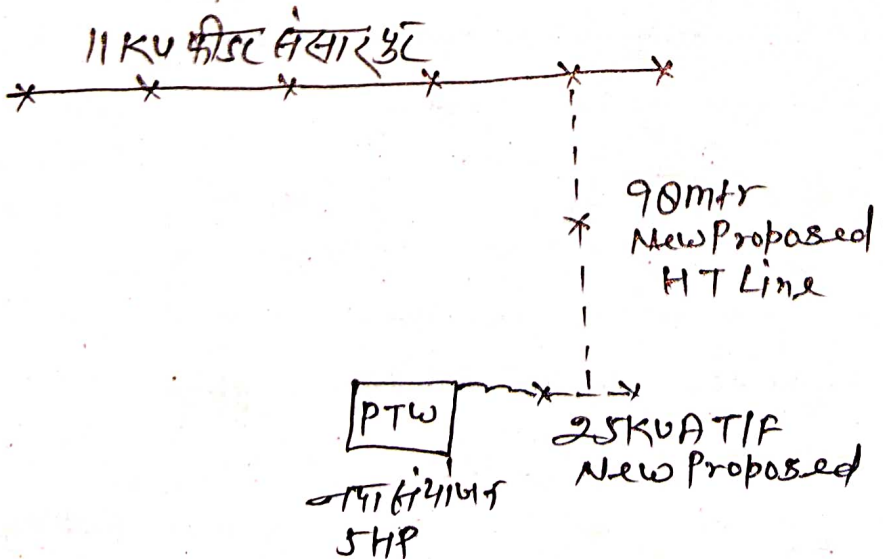 11 KV फीडर संसारपुर
90mtr
New Proposed
HT Line
PTW
25KVA T/F
New Proposed
नया संयोजन
5HP